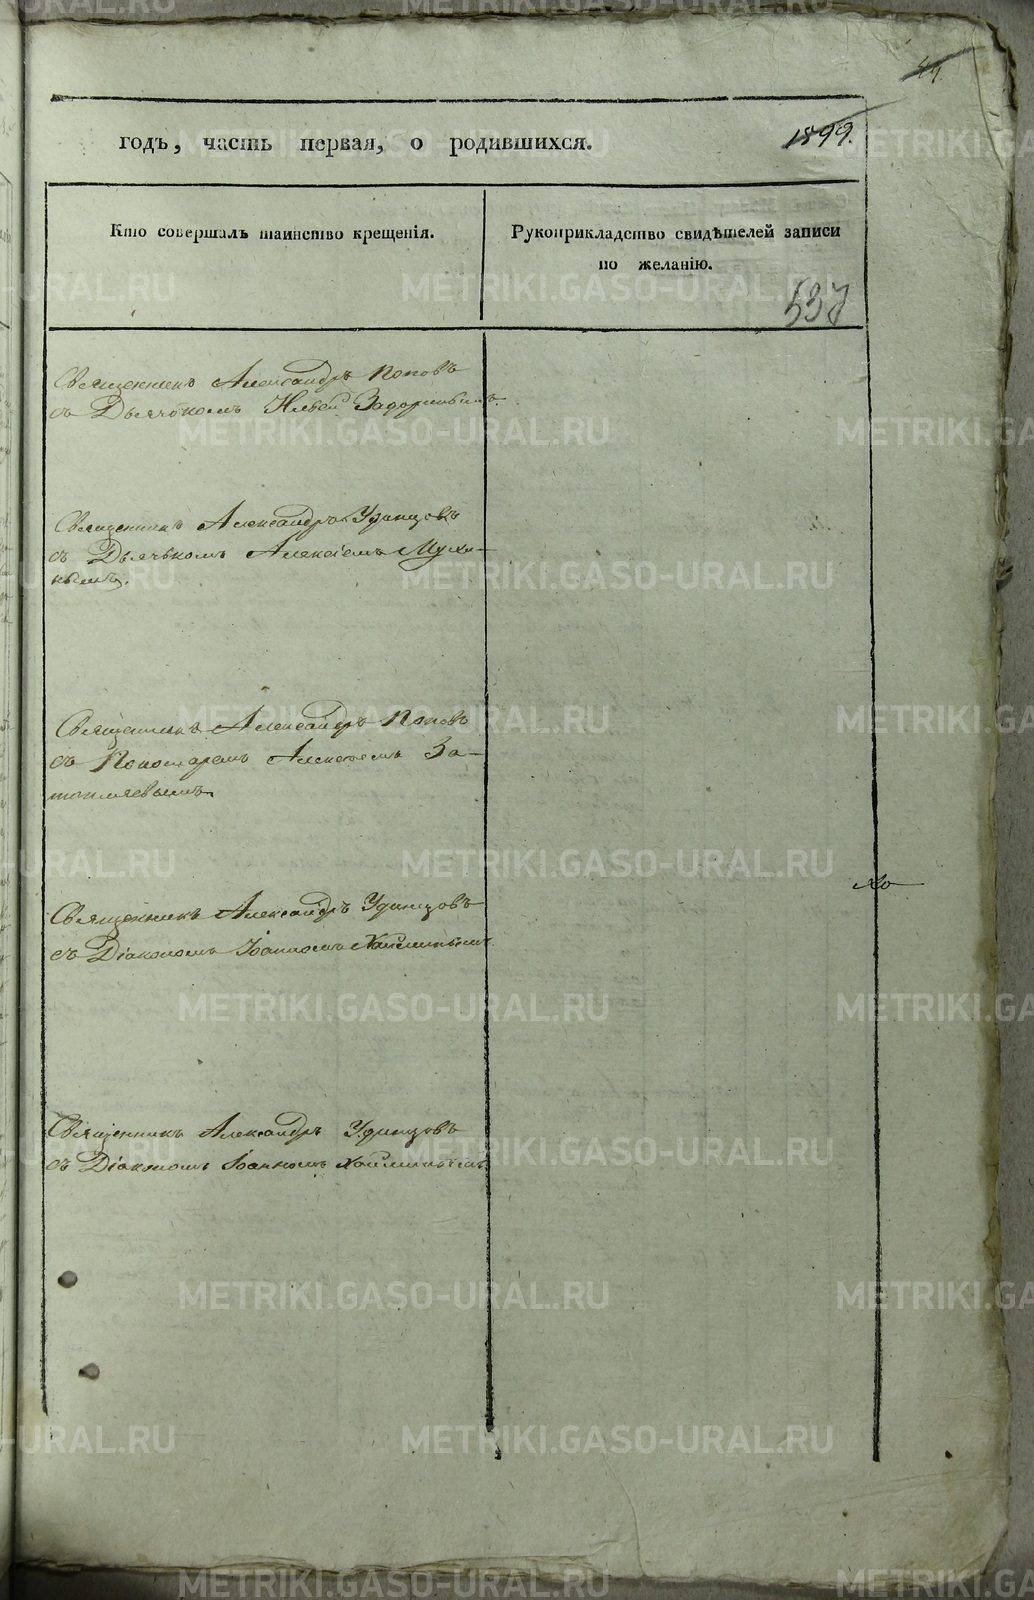 годъ, часть первая, о родившихся.
1899.
Кто совершалъ таинство крещенія.
Рукоприкладство свидѣтелей записи
по желанію.
537
Священникъ Александръ Поповъ
съ Дьячкомъ Ильей Задоринымъ.
Священникъ Александръ Удинцовъ
съ Дьячькомъ Алексіемъ Мухи-
нымъ.
Священникъ Александръ Поповъ
съ Пономаремъ Алексеемъ За-
топляевымъ.
Священникъ Александръ Удинцовъ
съ Діакономъ Іоанномъ Хайминымъ
Священникъ Александръ Удинцовъ
съ Діакономъ Іоанномъ Хайминымъ
METRIKI.GASO-URAL.RU